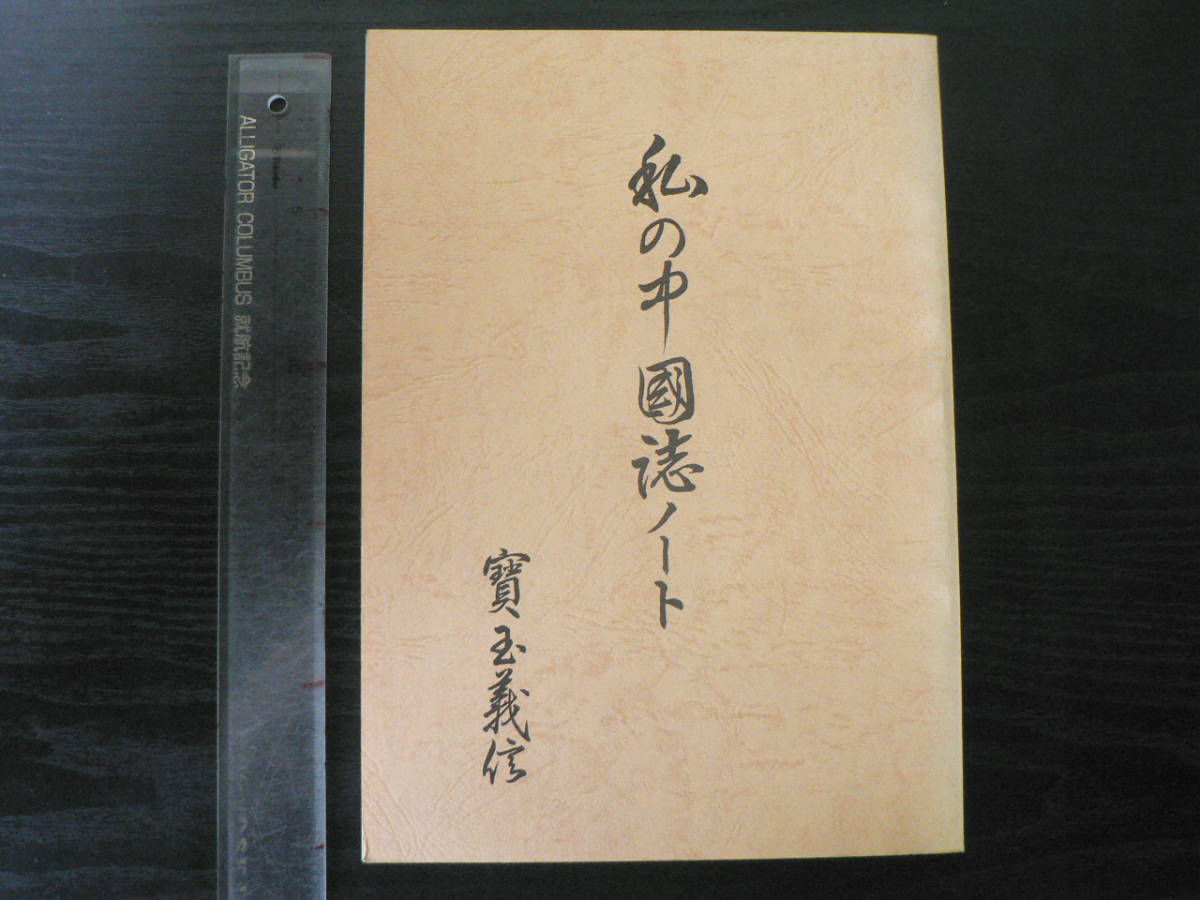 私の中國誌ノート
寶玉義信
ALLIGATOR COLUMBUS 就航記念